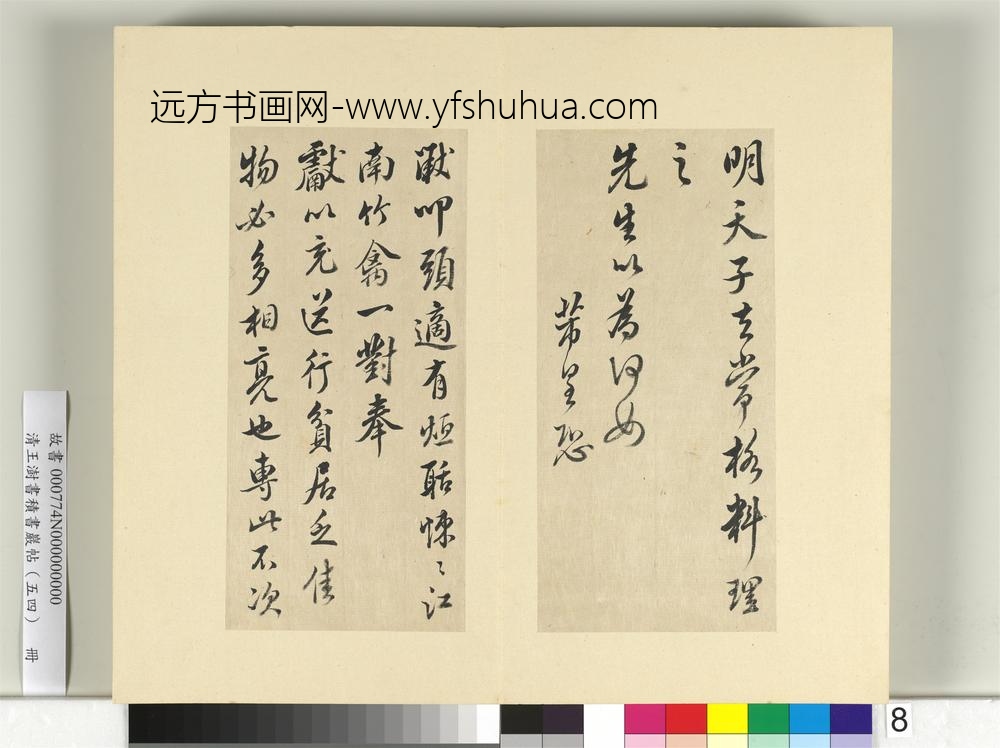 远方书画网-www.yfshuhua.com
明天子去常格料理
之
先生以為何如
芾皇恐
黻叩頭適有烜聒悚〻江
南竹禽一對奉
獻以充送行貧居乏佳
物必多相亮也專此不次
故書 000774N000000000
清王澍書積書巖帖（五四） 冊
8